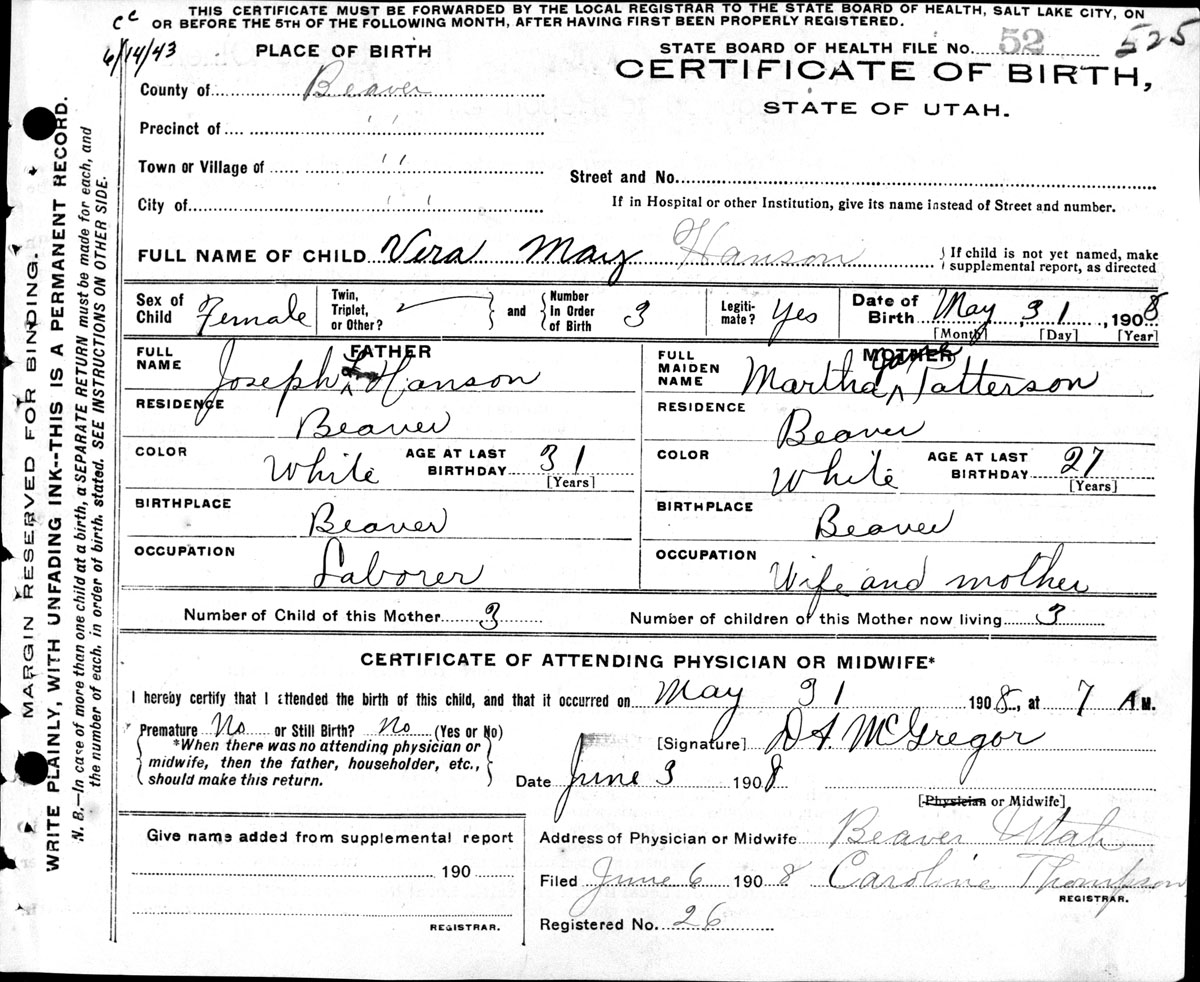 THIS CERTIFICATE MUST BE FORWARDED BY THE LOCAL REGISTRAR TO THE STATE BOARD OF HEALTH, SALT LAKE CITY, ON
OR BEFORE THE 5TH OF THE FOLLOWING MONTH, AFTER HAVING FIRST BEEN PROPERLY REGISTERED.
cc
6/14/43
PLACE OF BIRTH
STATE BOARD OF HEALTH FILE No. 52 525
CERTIFICATE OF BIRTH,
STATE OF UTAH.
County of Beaver
Precinct of " 
Town or Village of "
City of "
Street and No.
If in Hospital or other Institution, give its name instead of Street and number.
FULL NAME OF CHILD Vera May Hanson { If child is not yet named, make
supplemental report, as directed
Sex of Child Female
Twin, Triplet, or Other? } and { Number In Order of Birth 3
Legiti-mate? Yes
Date of Birth May 31, 1908
[Month] [Day] [Year]
FATHER
FULL NAME Joseph Hanson
RESIDENCE Beaver
COLOR White AGE AT LAST BIRTHDAY 31
[Years]
BIRTHPLACE Beaver
OCCUPATION Laborer
MOTHER
FULL MAIDEN NAME Martha Patterson
RESIDENCE Beaver
COLOR White AGE AT LAST BIRTHDAY 27
[Years]
BIRTHPLACE Beaver
OCCUPATION Wife and mother
Number of Child of this Mother 3 Number of children of this Mother now living 3
CERTIFICATE OF ATTENDING PHYSICIAN OR MIDWIFE*
I hereby certify that I attended the birth of this child, and that it occurred on May 31 1908, at 7 A.M.
Premature No or Still Birth? No (Yes or No)
{ *When there was no attending physician or
midwife, then the father, householder, etc.,
should make this return. }
[Signature] D A. McGregor
Date June 3 1908
[Physician or Midwife]
Give name added from supplemental report
190
REGISTRAR.
Address of Physician or Midwife Beaver Utah
Filed June 6 1908 Caroline Thompson
REGISTRAR.
Registered No. 26
MARGIN RESERVED FOR BINDING.
WRITE PLAINLY, WITH UNFADING INK--THIS IS A PERMANENT RECORD.
N. B.—In case of more than one child at a birth, a SEPARATE RETURN must be made for each, and
the number of each, in order of birth, stated. SEE INSTRUCTIONS ON OTHER SIDE.